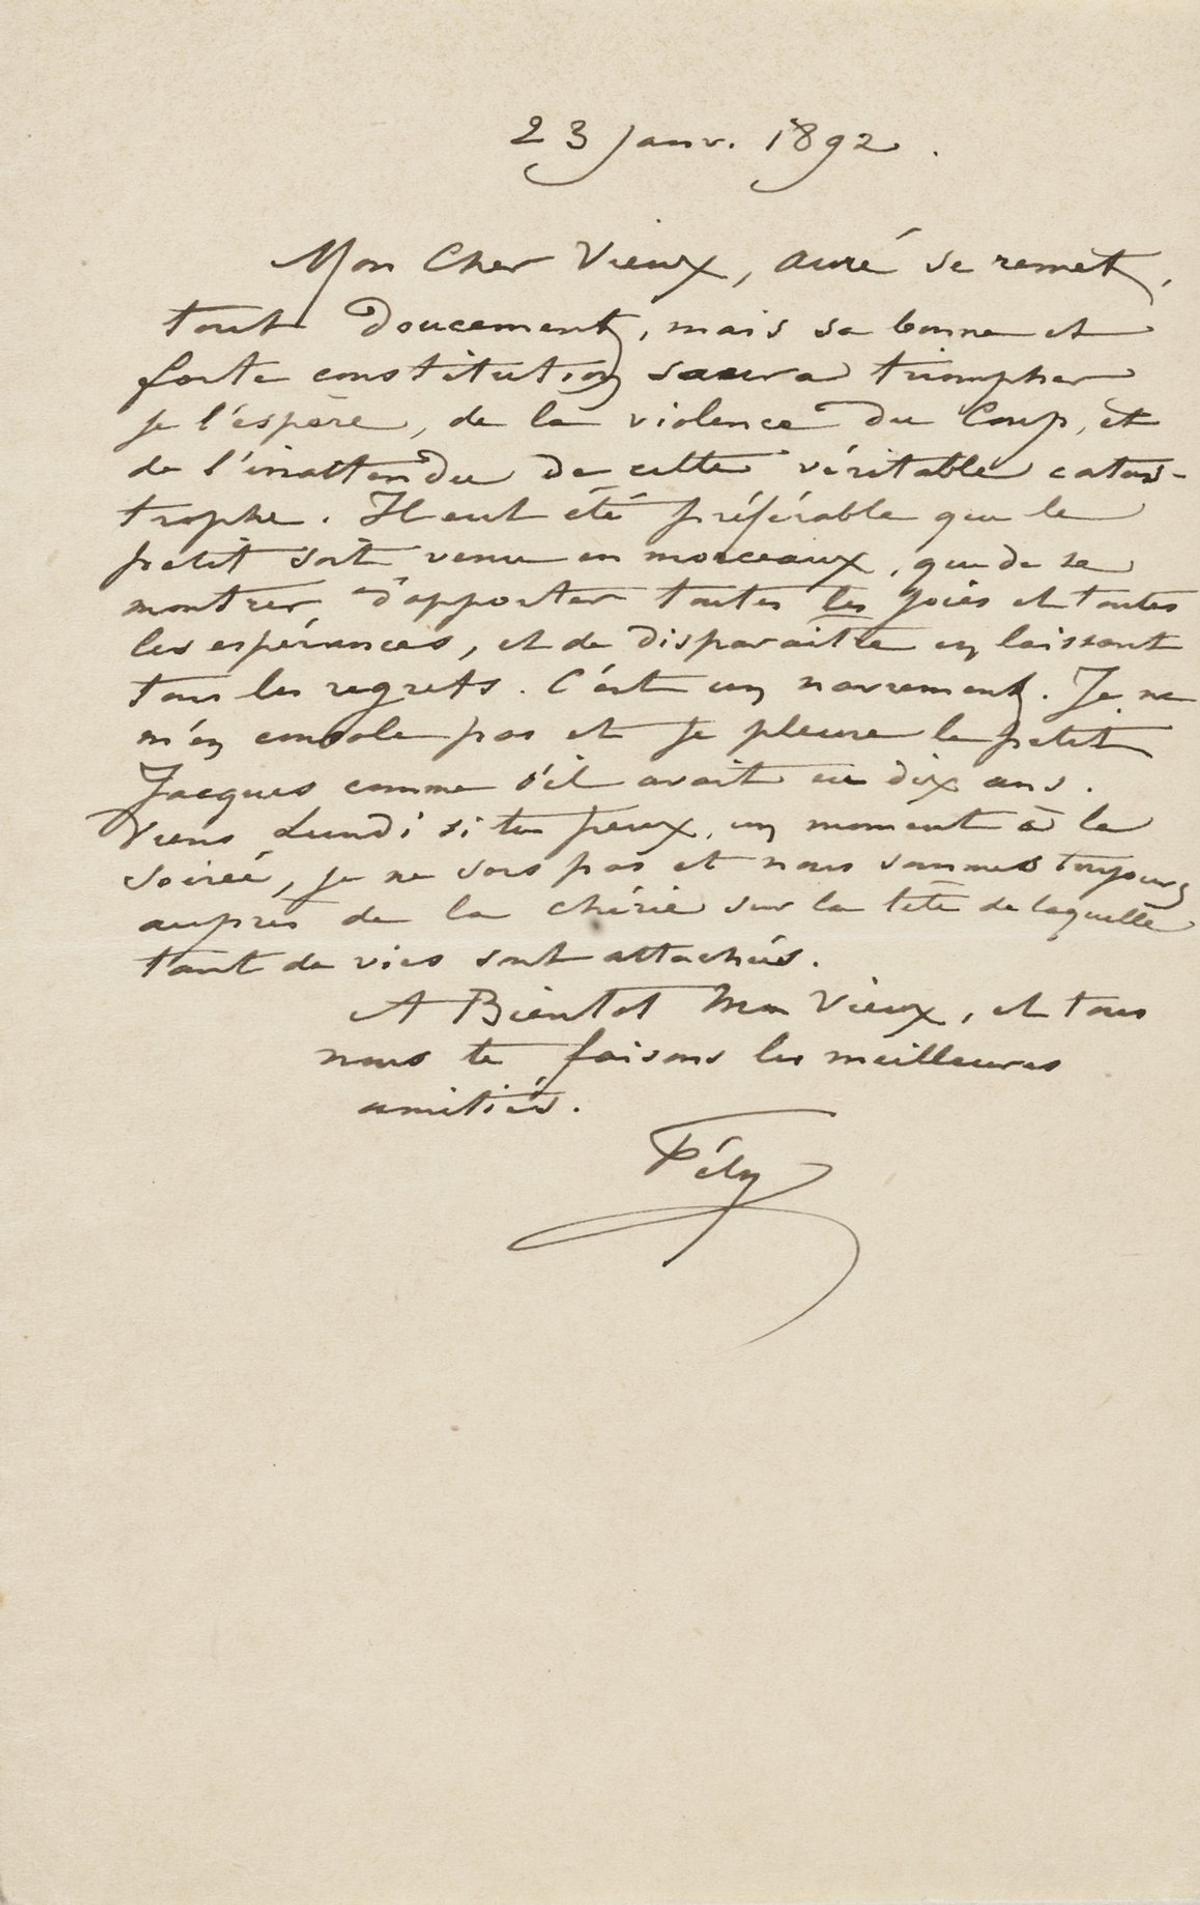 23 janv. 1892.
Mon Cher Vieux, Auré se remet,
tout doucement, mais sa bonne et
forte constitution saura triompher
je l'espère, de la violence du Coup, et
de l'inattendu de cette véritable catas-
trophe. Il eut été préférable que le
petit soit venu en morceaux, que de se
montrer d'apporter toutes les joies et toutes
les espérances, et de disparaitre en laissant
tous les regrets. C'est un navrement. Je ne
m'en console pas et je pleure le petit
Jacques comme s'il avait eu dix ans.
Viens Lundi si tu peux, un moment à la
soirée, je ne sors pas et nous sommes toujours
auprès de la chérie sur la tête de laquelle
tant de vies sont attachées.
A Bientot Mon Vieux, et tous
nous te faisons les meilleures
amitiés.
Fély